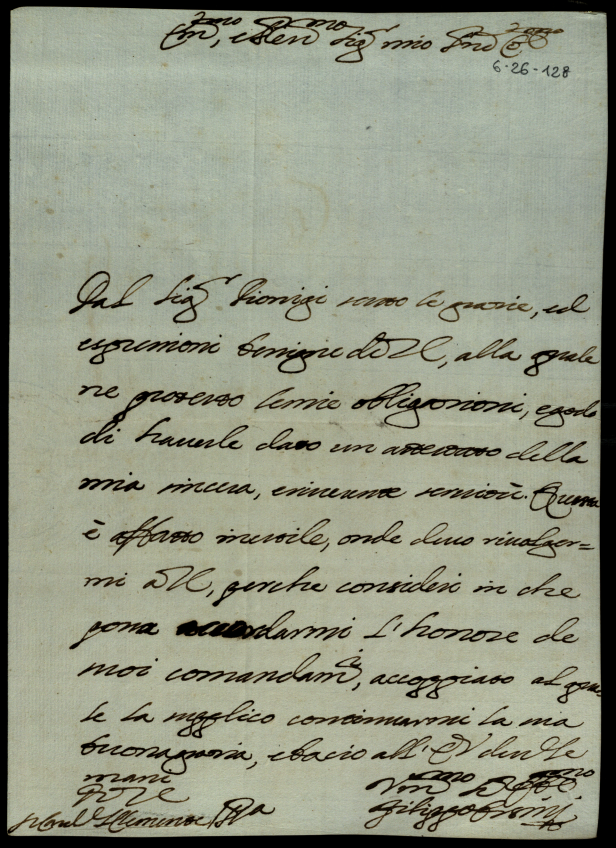 Em.mo, e Rev.mo Sig.r mio P.ne Col.mo
6-26-128
Dal Sig.r Dionigi sento le grazie, ed
espressioni benigne di V.E., alla quale
ne protesto le mie obligazioni, e godo
di haverle dato un attestato della
mia sincera, e riverente servitù. Questa
è affatto inutile, onde devo rivolger=
mi a V.E., perche consideri in che
possa accordarmi l'honore de
suoi comandam.ti, appoggiato al qua=
le la supplico continuarmi la sua
buona grazia, e bacio all'E.V. dev.te le
mani
Filippo Orsini